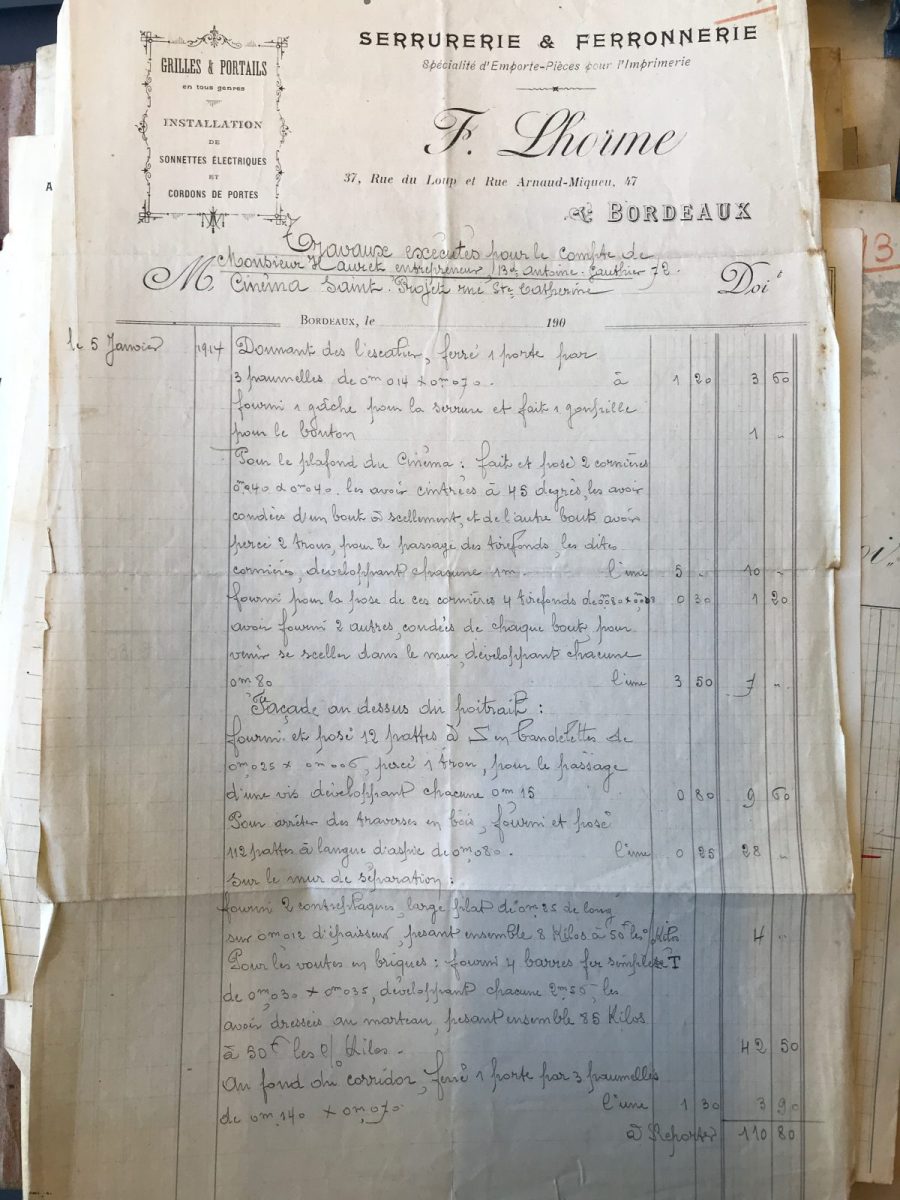 GRILLES & PORTAILS
en tous genres
INSTALLATION
DE
SONNETTES ÉLECTRIQUES
ET
CORDONS DE PORTES
SERRURERIE & FERRONNERIE
Spécialité d'Emporte-Pièces pour l'Imprimerie
F. Lhorme
37, Rue du Loup et Rue Arnaud-Miqueu, 47
BORDEAUX
Travaux exécutés pour le compte de
M Monsieur Hauret entrepreneur, Bd Antoine Gauthier 72. Doit
Cinéma Saint-Projet rue Ste Catherine
BORDEAUX, le 190
le 5 Janvier 1914 Donnant dès l'escalier, ferré 1 porte par
3 paumelles de 0m014 x 0m070. à 1 20 3 60
fourni 1 gâche pour la serrure et fait 1 goupille
pour le bouton 1 "
Pour le plafond du Cinéma : fait et posé 2 cornières
0m040 x 0m040. les avoir cintrées à 45 degrès, les avoir
condées d'un bout à scellement, et de l'autre bout avoir
percé 2 trous, pour le passage des tirefonds, les dites
cornières, développant chacune 1m. l'une 5 " 10 "
fourni pour la pose de ces cornières 4 tirefonds de 0m080 x 0 30 1 20
avoir fourni 2 autres, condées de chaque bout, pour
venir se sceller dans le mur, développant chacune
0m80 l'une 3 50 7 "
Façade au dessus du poitrail :
fourni et posé 12 pattes à S en bandelettes de
0m025 x 0m006, percé 1 trou, pour le passage
d'une vis développant chacune 0m15 0 80 9 60
Pour arrêter des traverses en bois, fourni et posé
112 pattes à langue d'aspic de 0m080. l'une 0 25 28 "
Sur le mur de séparation :
fourni 2 contreplaques, large plat de 0m25 de long
sur 0m012 d'épaisseur, pesant ensemble 8 Kilos à 50f les % Kilos 4 "
Pour les voutes en briques : fourni 4 barres fer simple T
de 0m030 x 0m035, développant chacune 2m55, les
avoir dressées au marteau, pesant ensemble 85 Kilos
à 50f les % Kilos. 42 50
Au fond du corridor, ferré 1 porte par 3 paumelles
de 0m140 x 0m070. l'une 1 30 3 90
à Reporter 110 80